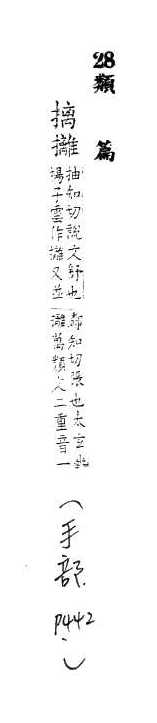 28
類篇
摛攡
抽知切說文舒也
揚子雲作攡又並
鄰知切張也太玄幽
攡萬類文二重音一
(手部 P442)